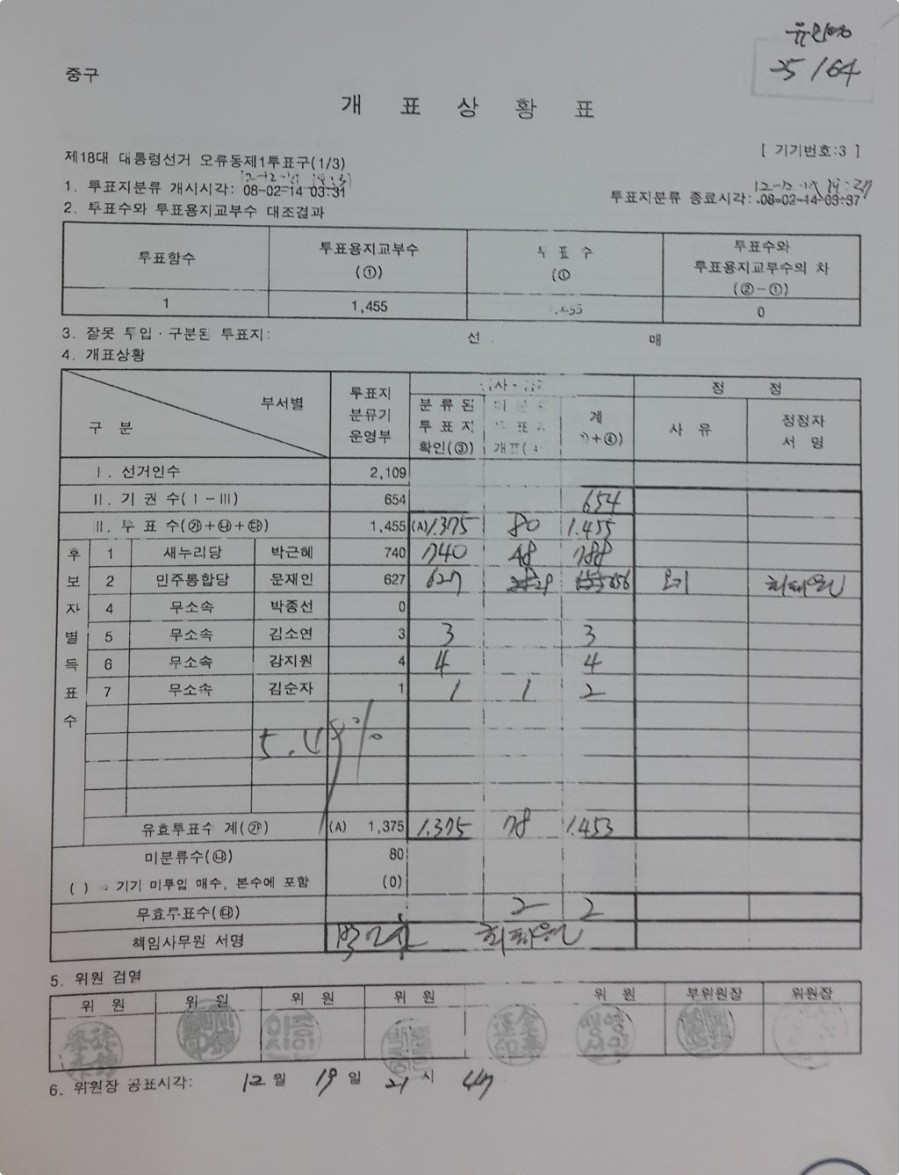 25/64
중구
개 표 상 황 표
[ 기기번호:3 ]
제18대 대통령선거 오류동제1투표구(1/3)
1. 투표지분류 개시시각: 08-02-14 03:31
투표지분류 종료시각: 08-02-14 03:37
2. 투표수와 투표용지교부수 대조결과
투표함수 투표용지교부수 (①) 투 표 수 (① 투표수와 투표용지교부수의 차 (②-①)
1 1,455 0
3. 잘못 투입·구분된 투표지: 선 매
4. 개표상황
구 분 부서별 투표지 분류기 운영부 분류된 투표지 확인(③) 계 +④) 정 점
사 유 정정자 서 명
Ⅰ. 선거인수 2,109
Ⅱ. 기 권 수(Ⅰ-Ⅲ) 654 654
Ⅱ. 투 표 수(㉮+㉯+㉰) 1,455 (A) 1.375 80 1.455
후보자별득표수
1 새누리당 박근혜 740 740 48 788
2 민주통합당 문재인 627 627 29 656 오기 최태원
4 무소속 박종선 0
5 무소속 김소연 3 3 3
6 무소속 강지원 4 4 4
7 무소속 김순자 1 1 1 2
5.48%
유효투표수 계(㉮) (A) 1,375 1.375 78 1.453
미분류수(㉯) 80
( ) → 기기 미투입 매수, 본수에 포함 (0)
무효투표수(㉰) 2 2
책임사무원 서명 최태원
5. 위원 검열
위 원 위 원 위 원 위 원 위 원 부위원장 위원장
6. 위원장 공표시각: 12월 19일 21시 47